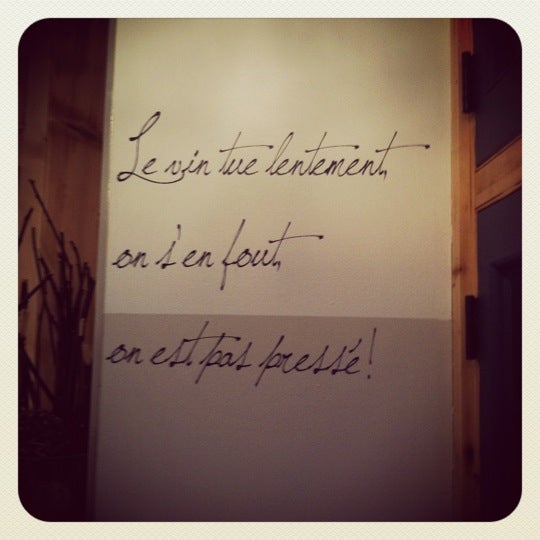 Le vin tue lentement,
on s'en fout,
on est pas pressé!